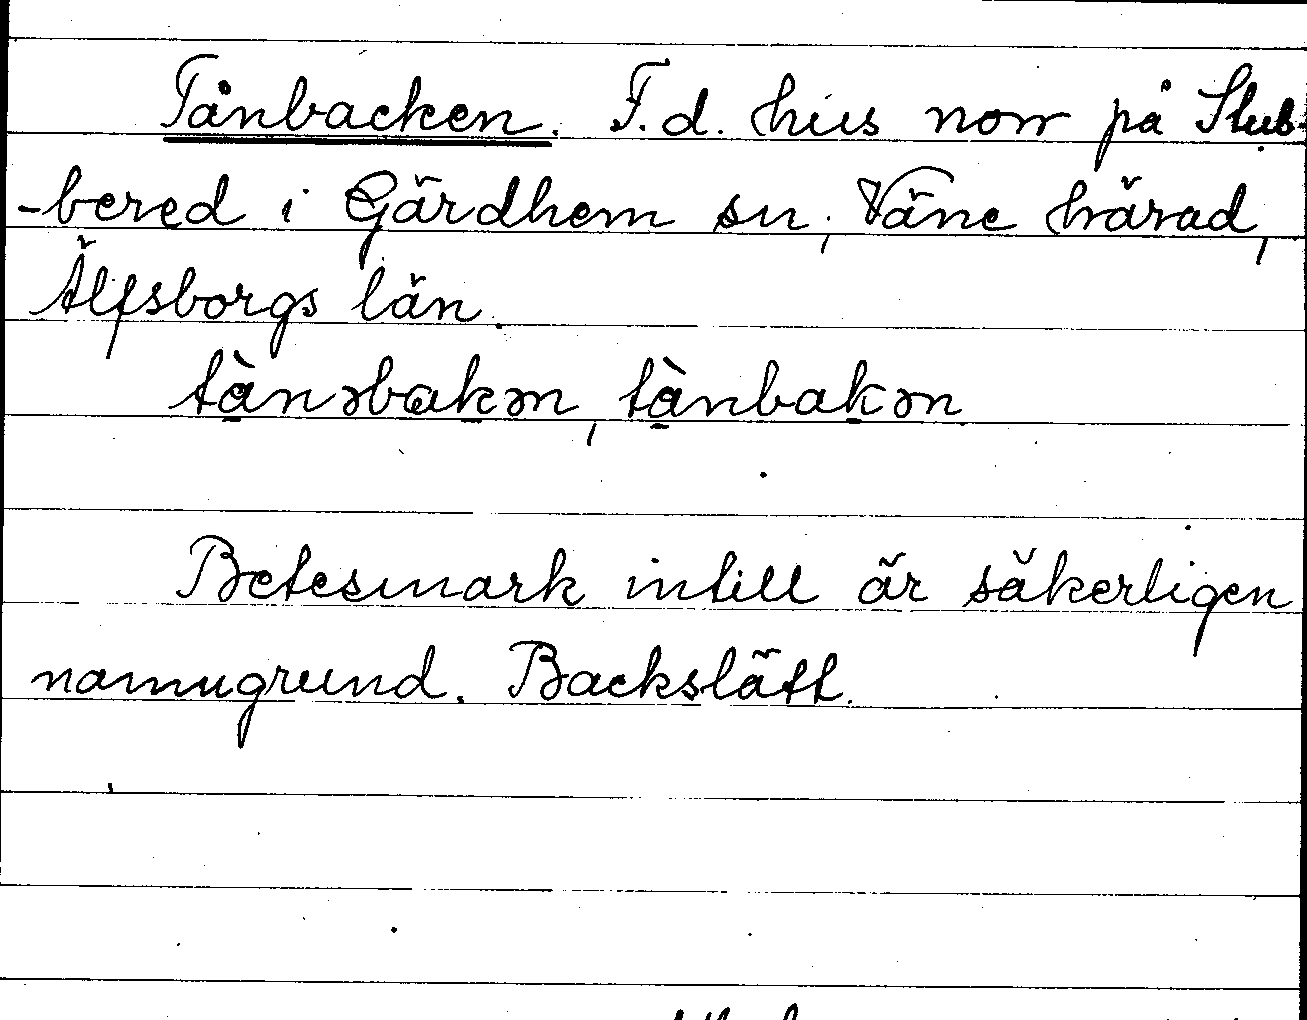 Tånbacken. F.d. hus norr på Stub-
-bered i Gärdhem sn, Väne härad,
Älfsborgs län.
tànəbakən, tànbakən
Betesmark intill är säkerligen
namngrund. Backslätt.